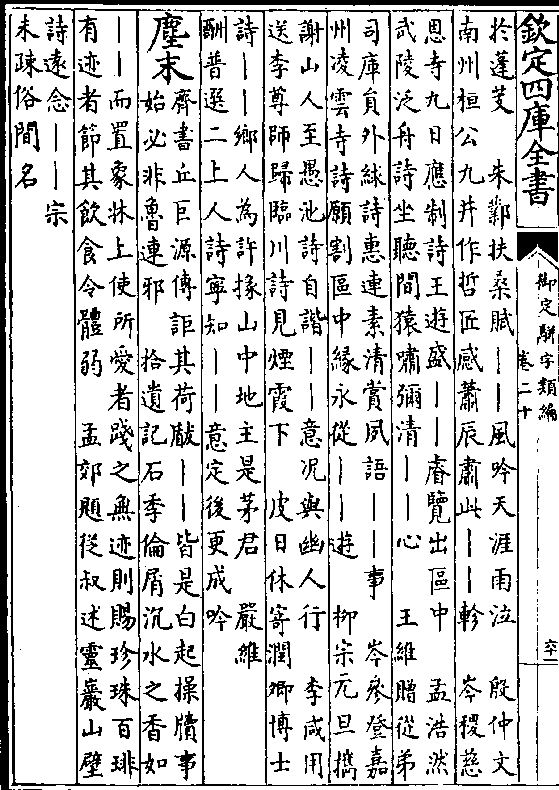 欽定四庫全書
御定駢字類編
卷二十
六十
於蓬艾 朱鄴扶桑賦||風吟天涯雨泣 殷仲文
南州桓公九井作哲匠感蕭辰肅此||軫 岑稷慈
恩寺九日應制詩王遊盛||睿覽出區中 孟浩然
武陵泛舟詩坐聽閒猿嘯彌清||心 王維贈從弟
司庫員外絿詩惠連素清賞夙語||事 岑參登嘉
州凌雲寺詩願割區中緣永從||遊 柳宗元旦攜
謝山人至愚池詩自諧||意況與幽人行 李咸用
送李尊師歸臨川詩見煙霞下 皮日休寄潤卿博士
詩||鄉人為許掾山中地主是茅君 嚴維
酬普選二上人詩寧知||意定後更成吟
塵末
齊書丘巨源傳詎其荷戟||皆是白起操牘事
始必非魯連邪 拾遺記石季倫屑沉水之香如
||而置象牀上使所愛者踐之無迹則賜珍珠百琲
有迹者節其飲食令體弱 孟郊題從叔述靈巖山壁
詩遠念||宗
未疎俗間名